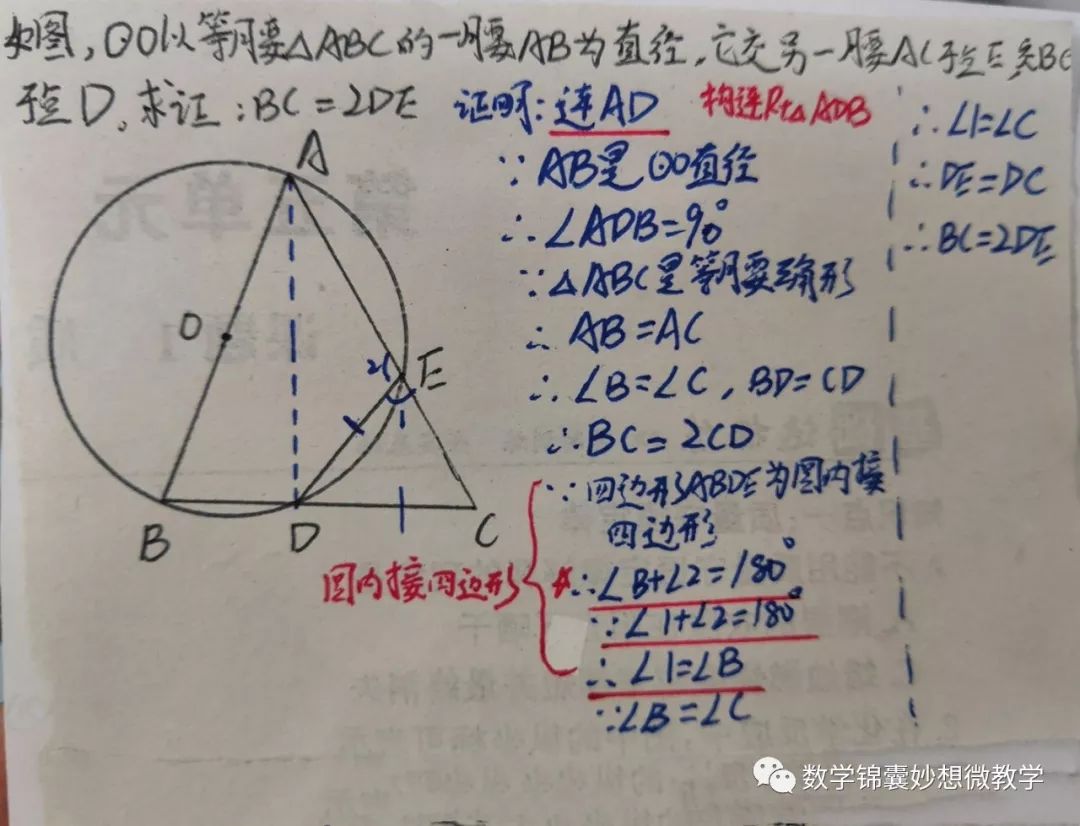 如图,⊙O以等腰△ABC的一腰AB为直径,它交另一腰AC于E,交BC
于D,求证:BC=2DE
证明:连AD
构造Rt△ADB
∵AB是⊙O直径
∴∠ADB=90°
∵△ABC是等腰三角形
∴AB=AC
∴∠B=∠C,BD=CD
∴BC=2CD
∵四边形ABDE为圆内接
四边形
∴∠B+∠2=180°
∵∠1+∠2=180°
∴∠1=∠B
∵∠B=∠C
圆内接四边形
∴∠1=∠C
∴DE=DC
∴BC=2DE
A
O
2
1
E
B
D
C
数学锦囊妙想微教学